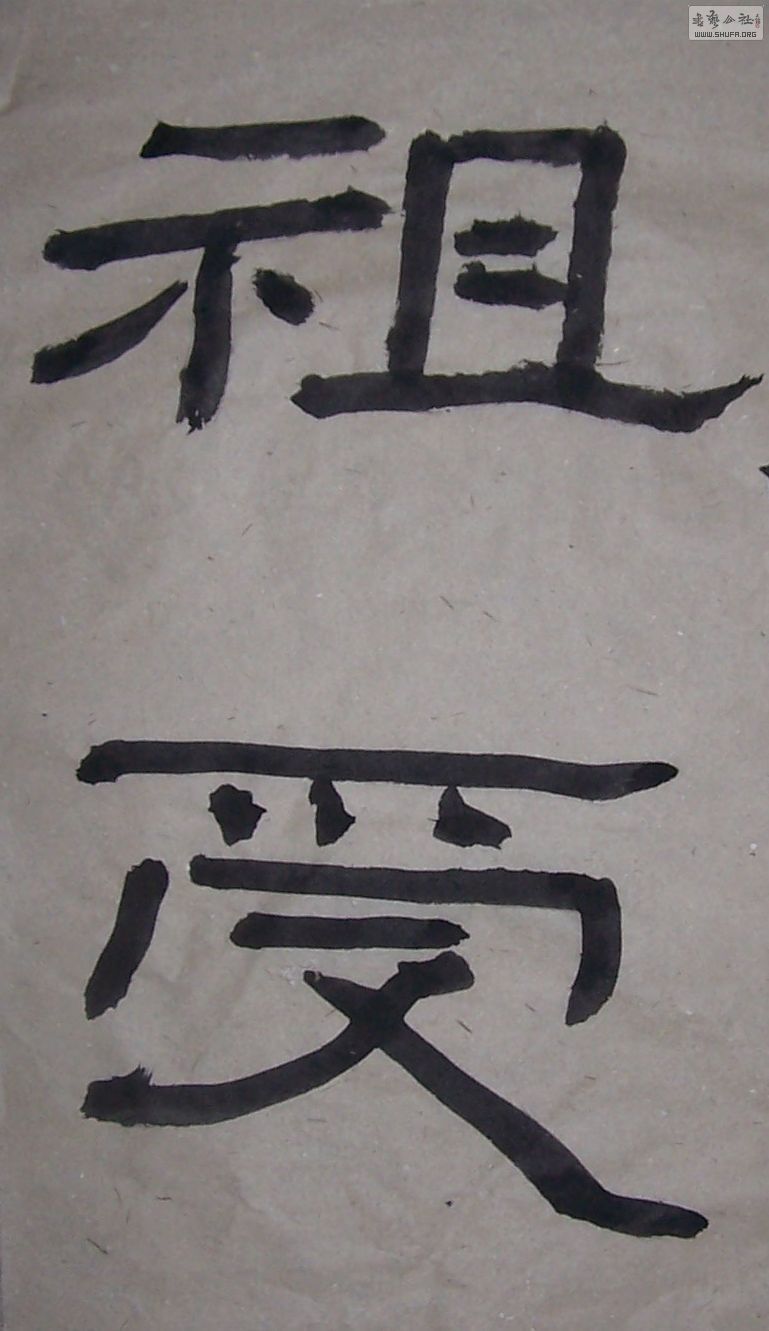 书艺公社
WWW.SHUFA.ORG
祖
受